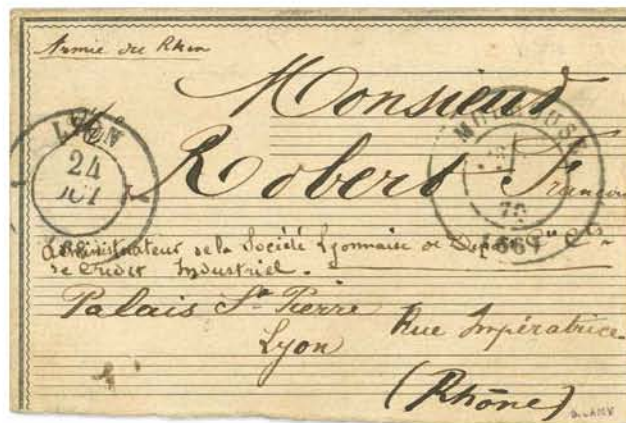 Armée du Rhin
Monsieur
Robert Francou
LYON
24
MULHOUSE
70
Administrateur de la Société Lyonnaise de Depots Cts
de Crédit Industriel.
Palais St Pierre
Rue Impératrice
Lyon
(Rhône)